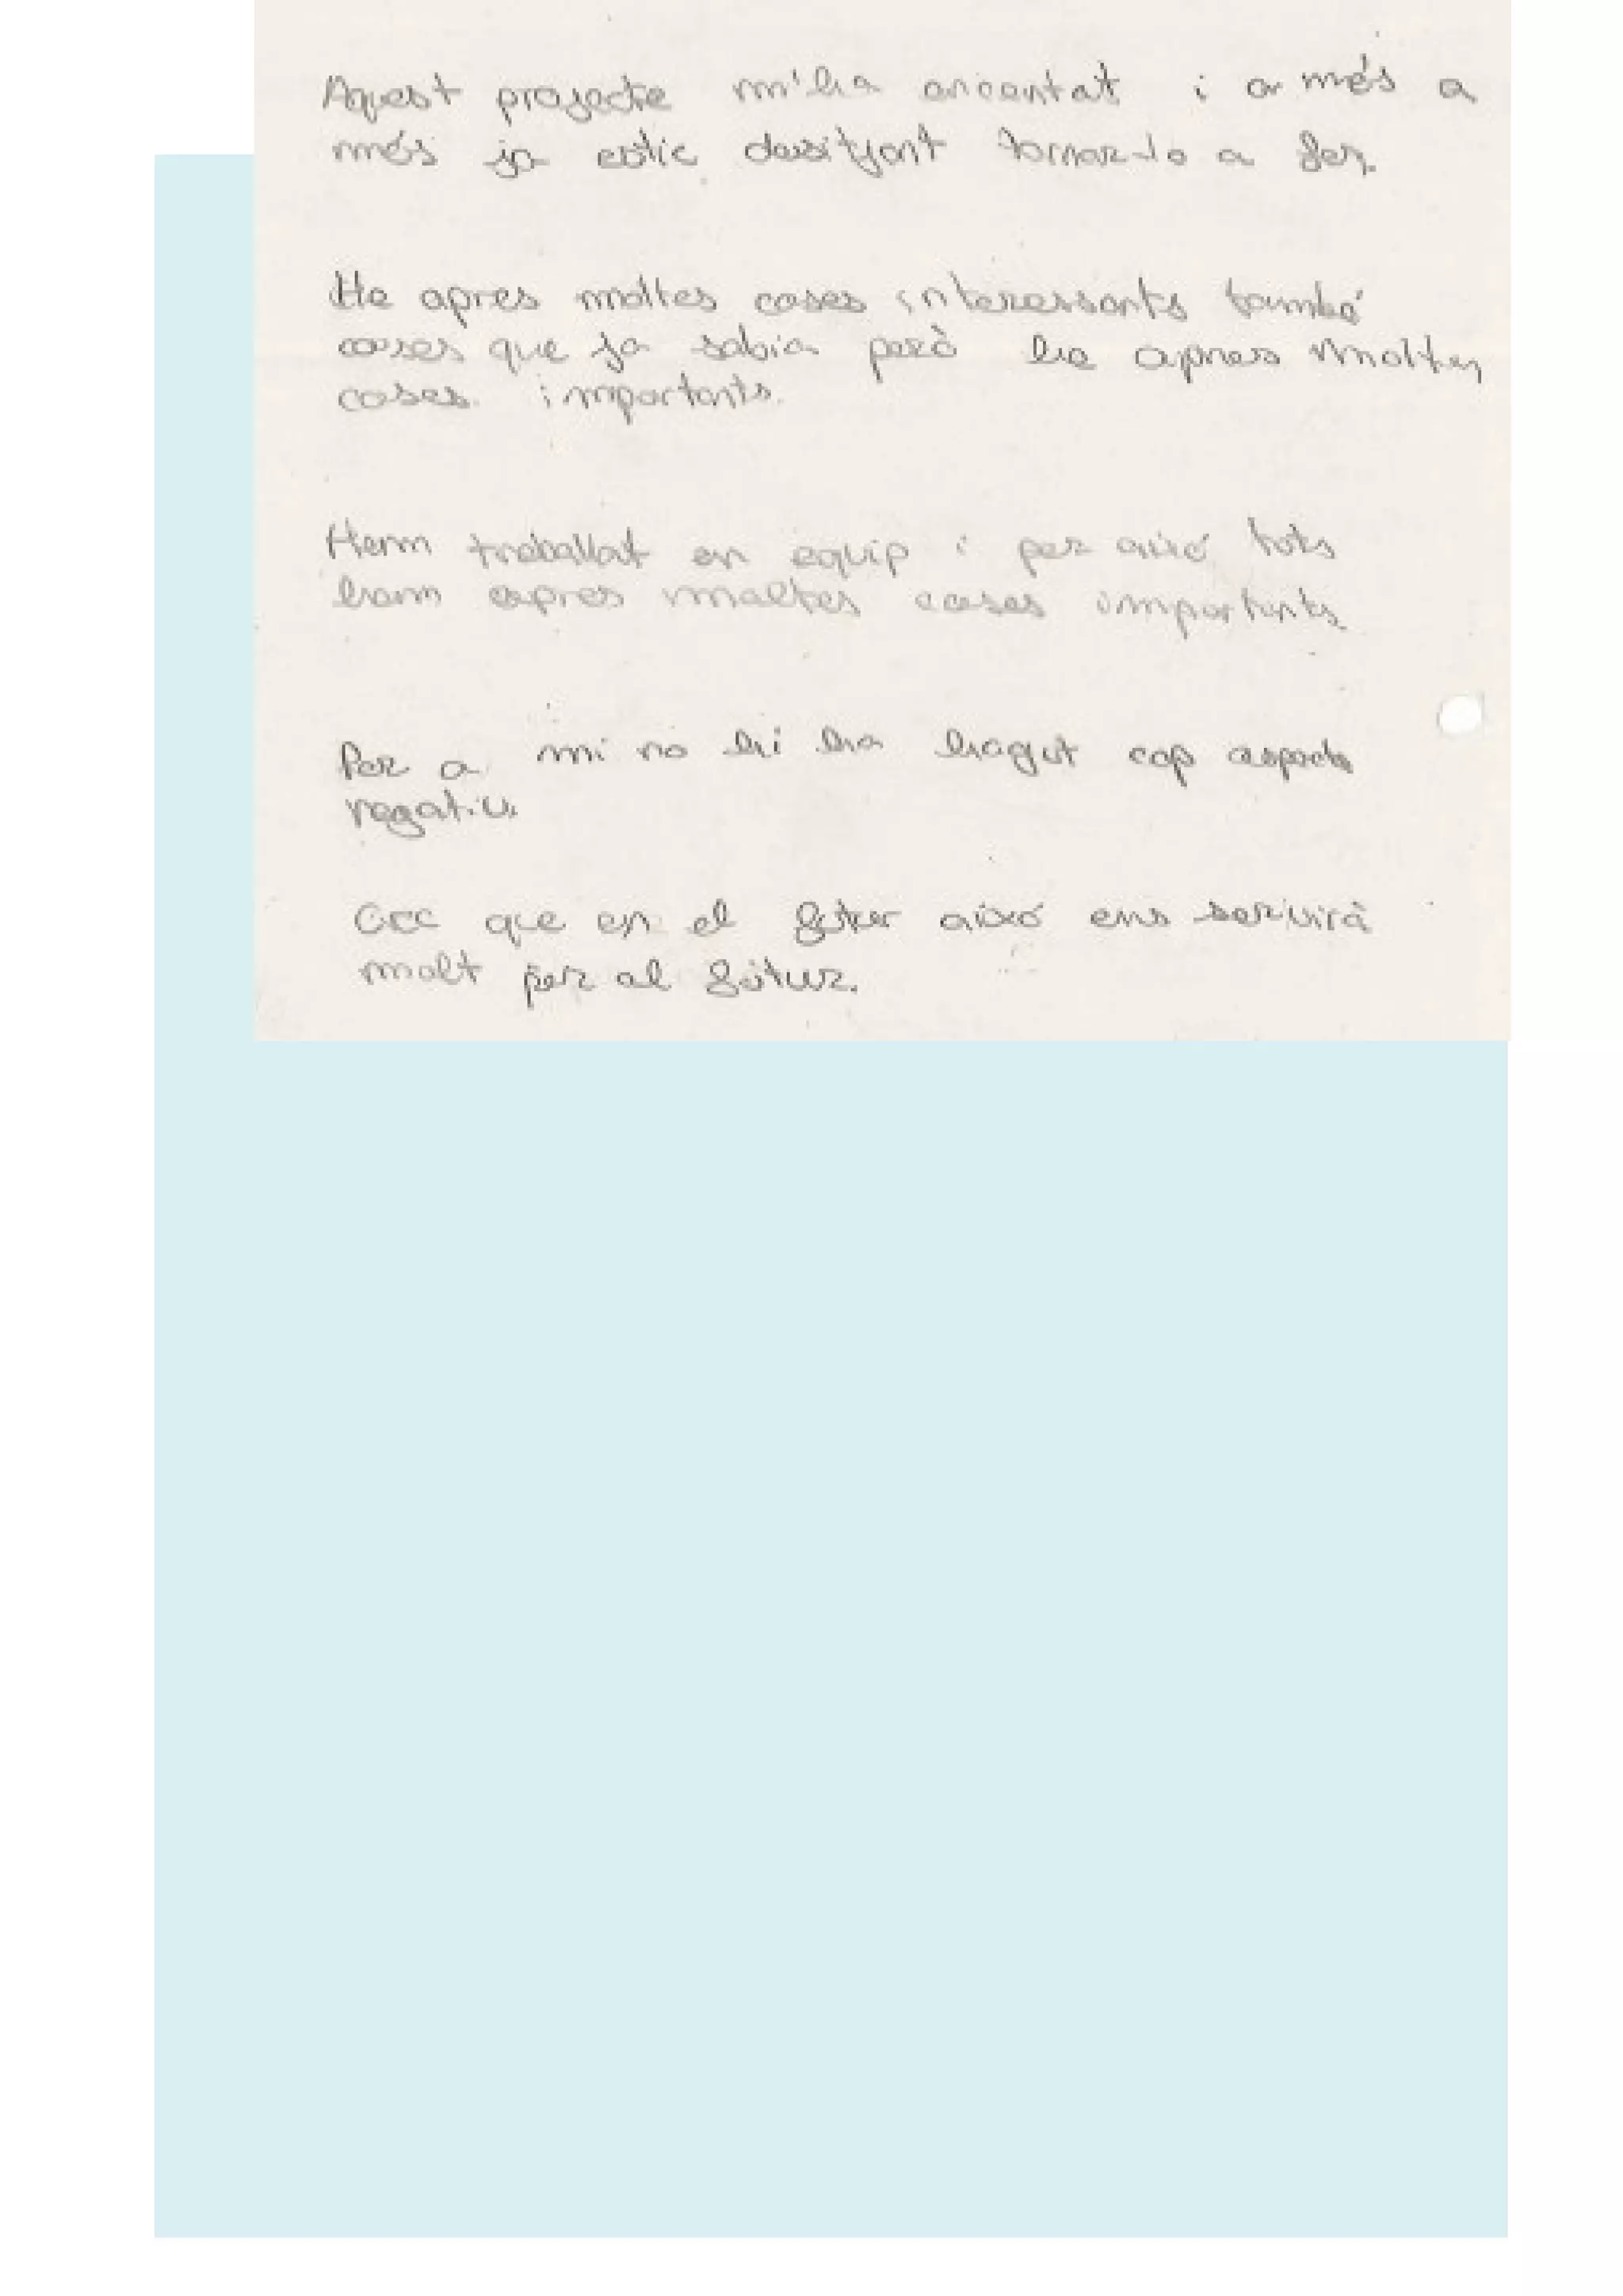 Aquest projecte m'ha encantat i a més a
més ja estic desitjant tornar-lo a fer.
He apres moltes coses interessants també
coses que ja sabia però he apres moltes
coses importants.
Hem treballat en equip i per aixó tots
ham apres moltes coses importants.
Per a mi no hi ha hagut cap aspecte
negatiu
Crec que en el futur aixó ens servirà
molt per al futur.